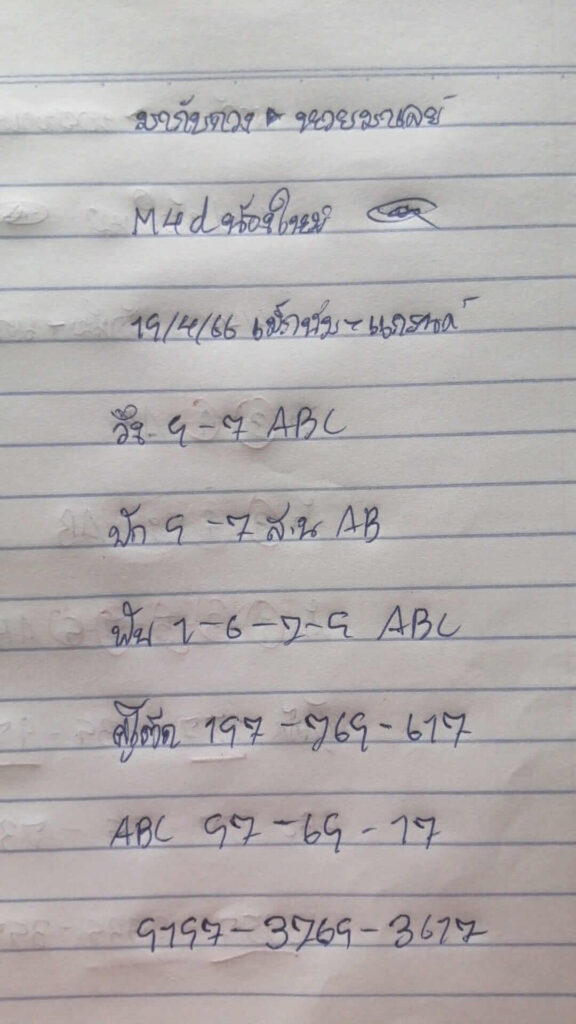 มากับดวง ► หวยมาเลย์
M4d น้องใหม่
19/4/66 แม็กนั่ม - แกรนด์
วิ่ง 9 - 7 ABC
ปัก 9 - 7 ส.น AB
ฟัน 1 - 6 - 7 - 9 ABC
197 - 769 - 617
ABC 97 - 69 - 17
9197 - 3769 - 3617